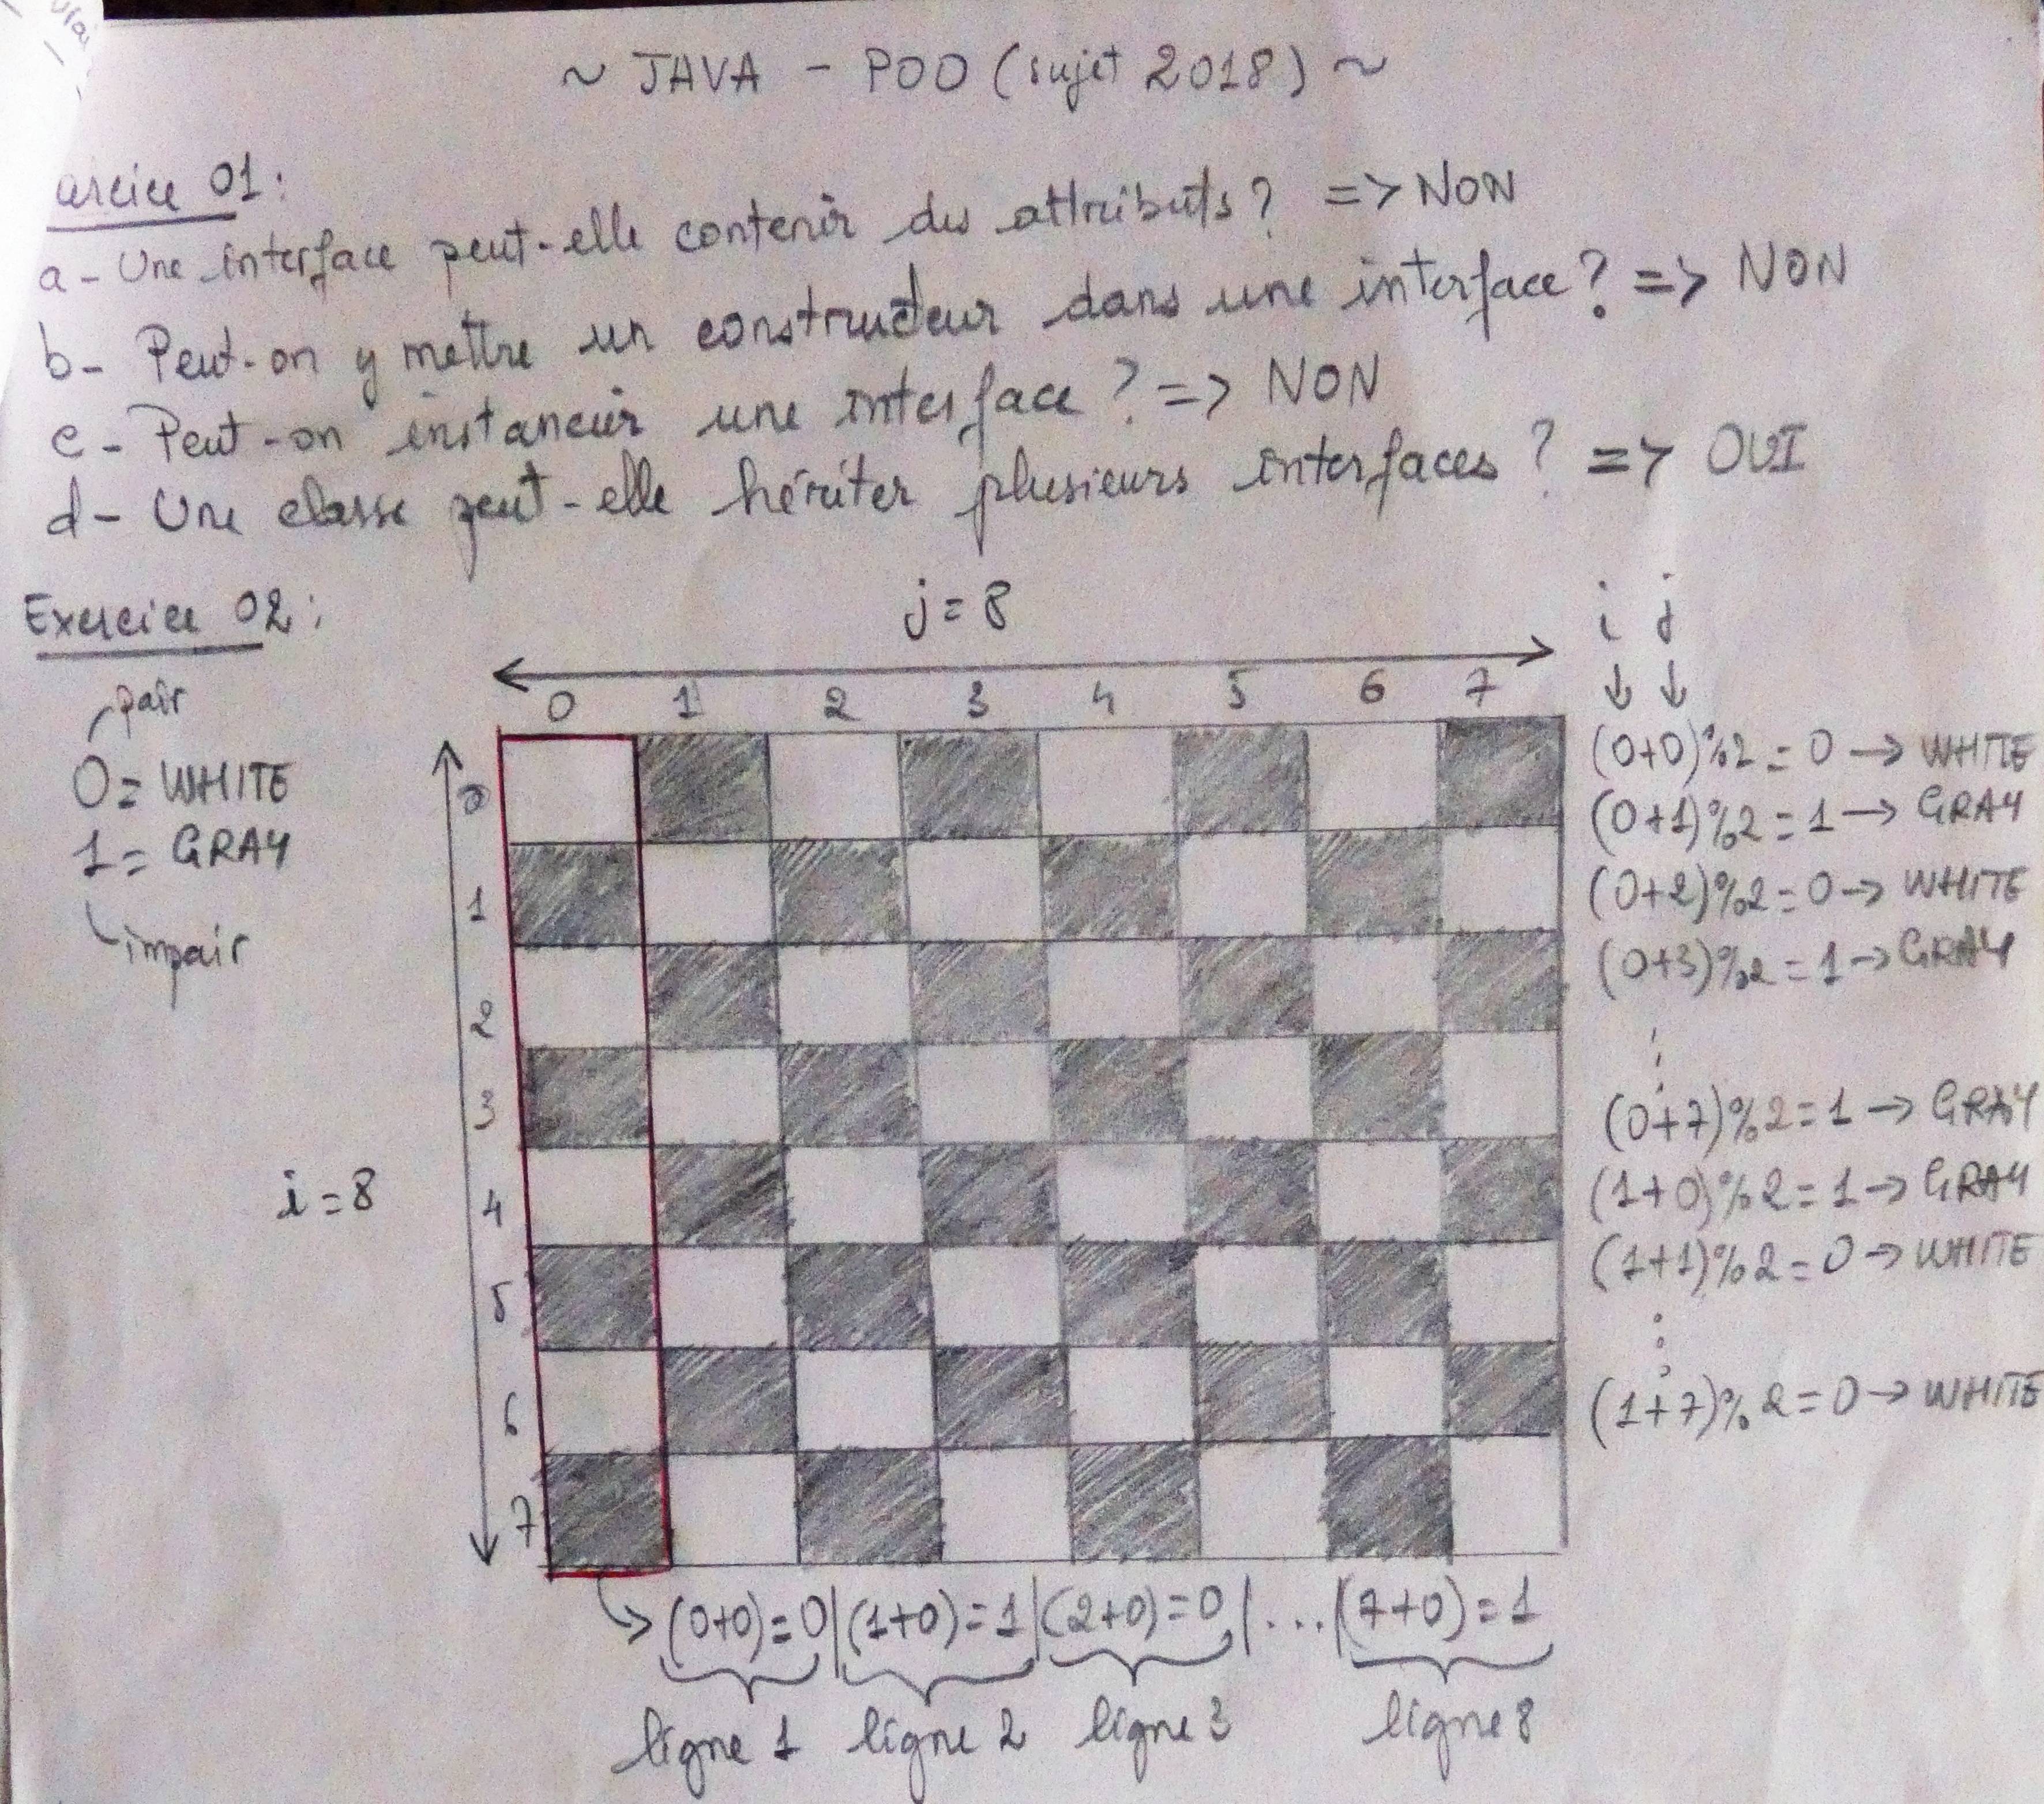 ~ JAVA - POO (sujet 2018) ~
ercice 01:
a - Une interface peut-elle contenir des attributs ? => NON
b - Peut-on y mettre un constructeur dans une interface ? => NON
c - Peut-on instancier une interface ? => NON
d - Une classe peut-elle hériter plusieurs interfaces ? => OUI
Exercice 02 :
pair
0 = WHITE
1 = GRAY
impair
j = 8
0 1 2 3 4 5 6 7
i = 8
0
1
2
3
4
5
6
7
i j
(0+0)%2 = 0 → WHITE
(0+1)%2 = 1 → GRAY
(0+2)%2 = 0 → WHITE
(0+3)%2 = 1 → GRAY
(0+7)%2 = 1 → GRAY
(1+0)%2 = 1 → GRAY
(1+1)%2 = 0 → WHITE
(1+7)%2 = 0 → WHITE
(0+0) = 0 | (1+0) = 1 | (2+0) = 0 | ... | (7+0) = 1
ligne 1 ligne 2 ligne 3 ligne 8